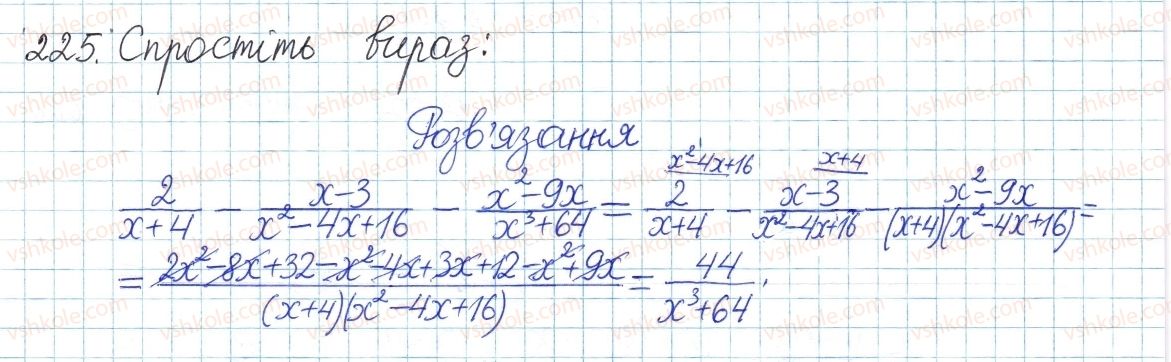 225. Спростіть вираз:
Розв'язання
2/(x+4) − (x−3)/(x²−4x+16) − (x²−9x)/(x³+64) = 2/(x+4) (x²−4x+16) − (x−3)/(x²−4x+16) (x+4) − (x²−9x)/((x+4)(x²−4x+16)) =
= (2x²−8x+32−x²−4x+3x+12−x²+9x)/((x+4)(x²−4x+16)) = 44/(x³+64).
vshkole.com